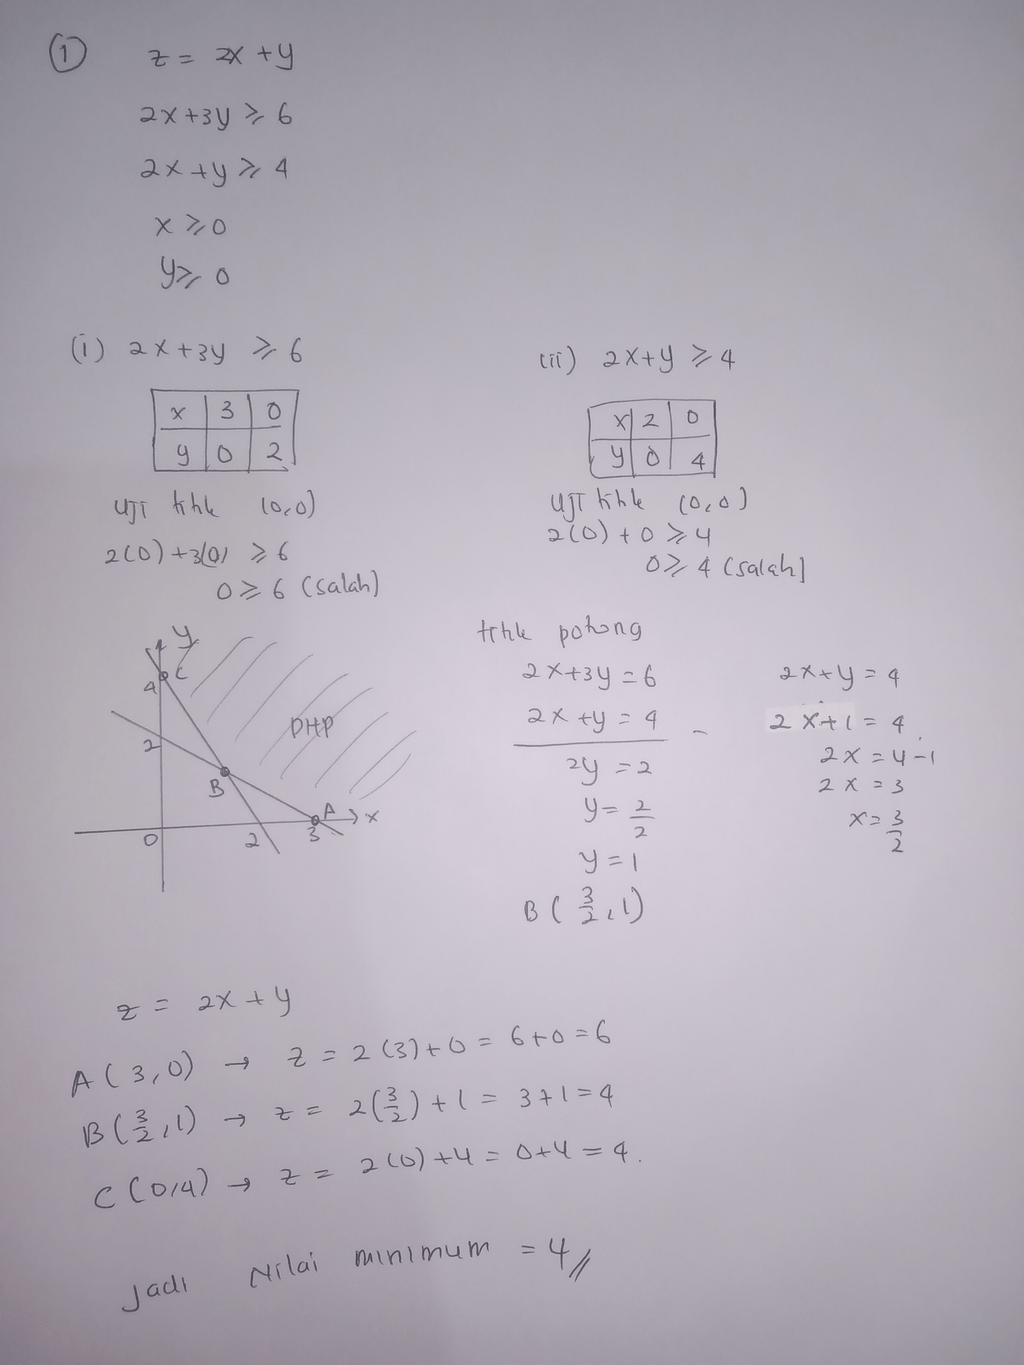 1
z = 2x + y
2x + 3y ⩾ 6
2x + y ⩾ 4
x ⩾ 0
y ⩾ 0
(i) 2x + 3y ⩾ 6
x 3 0
y 0 2
uji titik (0,0)
2(0) + 3(0) ⩾ 6
0 ⩾ 6 (salah)
(ii) 2x + y ⩾ 4
x 2 0
y 0 4
uji titik (0,0)
2(0) + 0 ⩾ 4
0 ⩾ 4 (salah)
y
4 C
DHP
2
B
A x
0 2 3
titik potong
2x + 3y = 6
2x + y = 4 -
2y = 2
y = 2/2
y = 1
B (3/2, 1)
2x + y = 4
2x + 1 = 4
2x = 4 - 1
2x = 3
x = 3/2
z = 2x + y
A (3,0) → z = 2(3) + 0 = 6 + 0 = 6
B (3/2, 1) → z = 2(3/2) + 1 = 3 + 1 = 4
C (0,4) → z = 2(0) + 4 = 0 + 4 = 4.
Jadi Nilai minimum = 4//